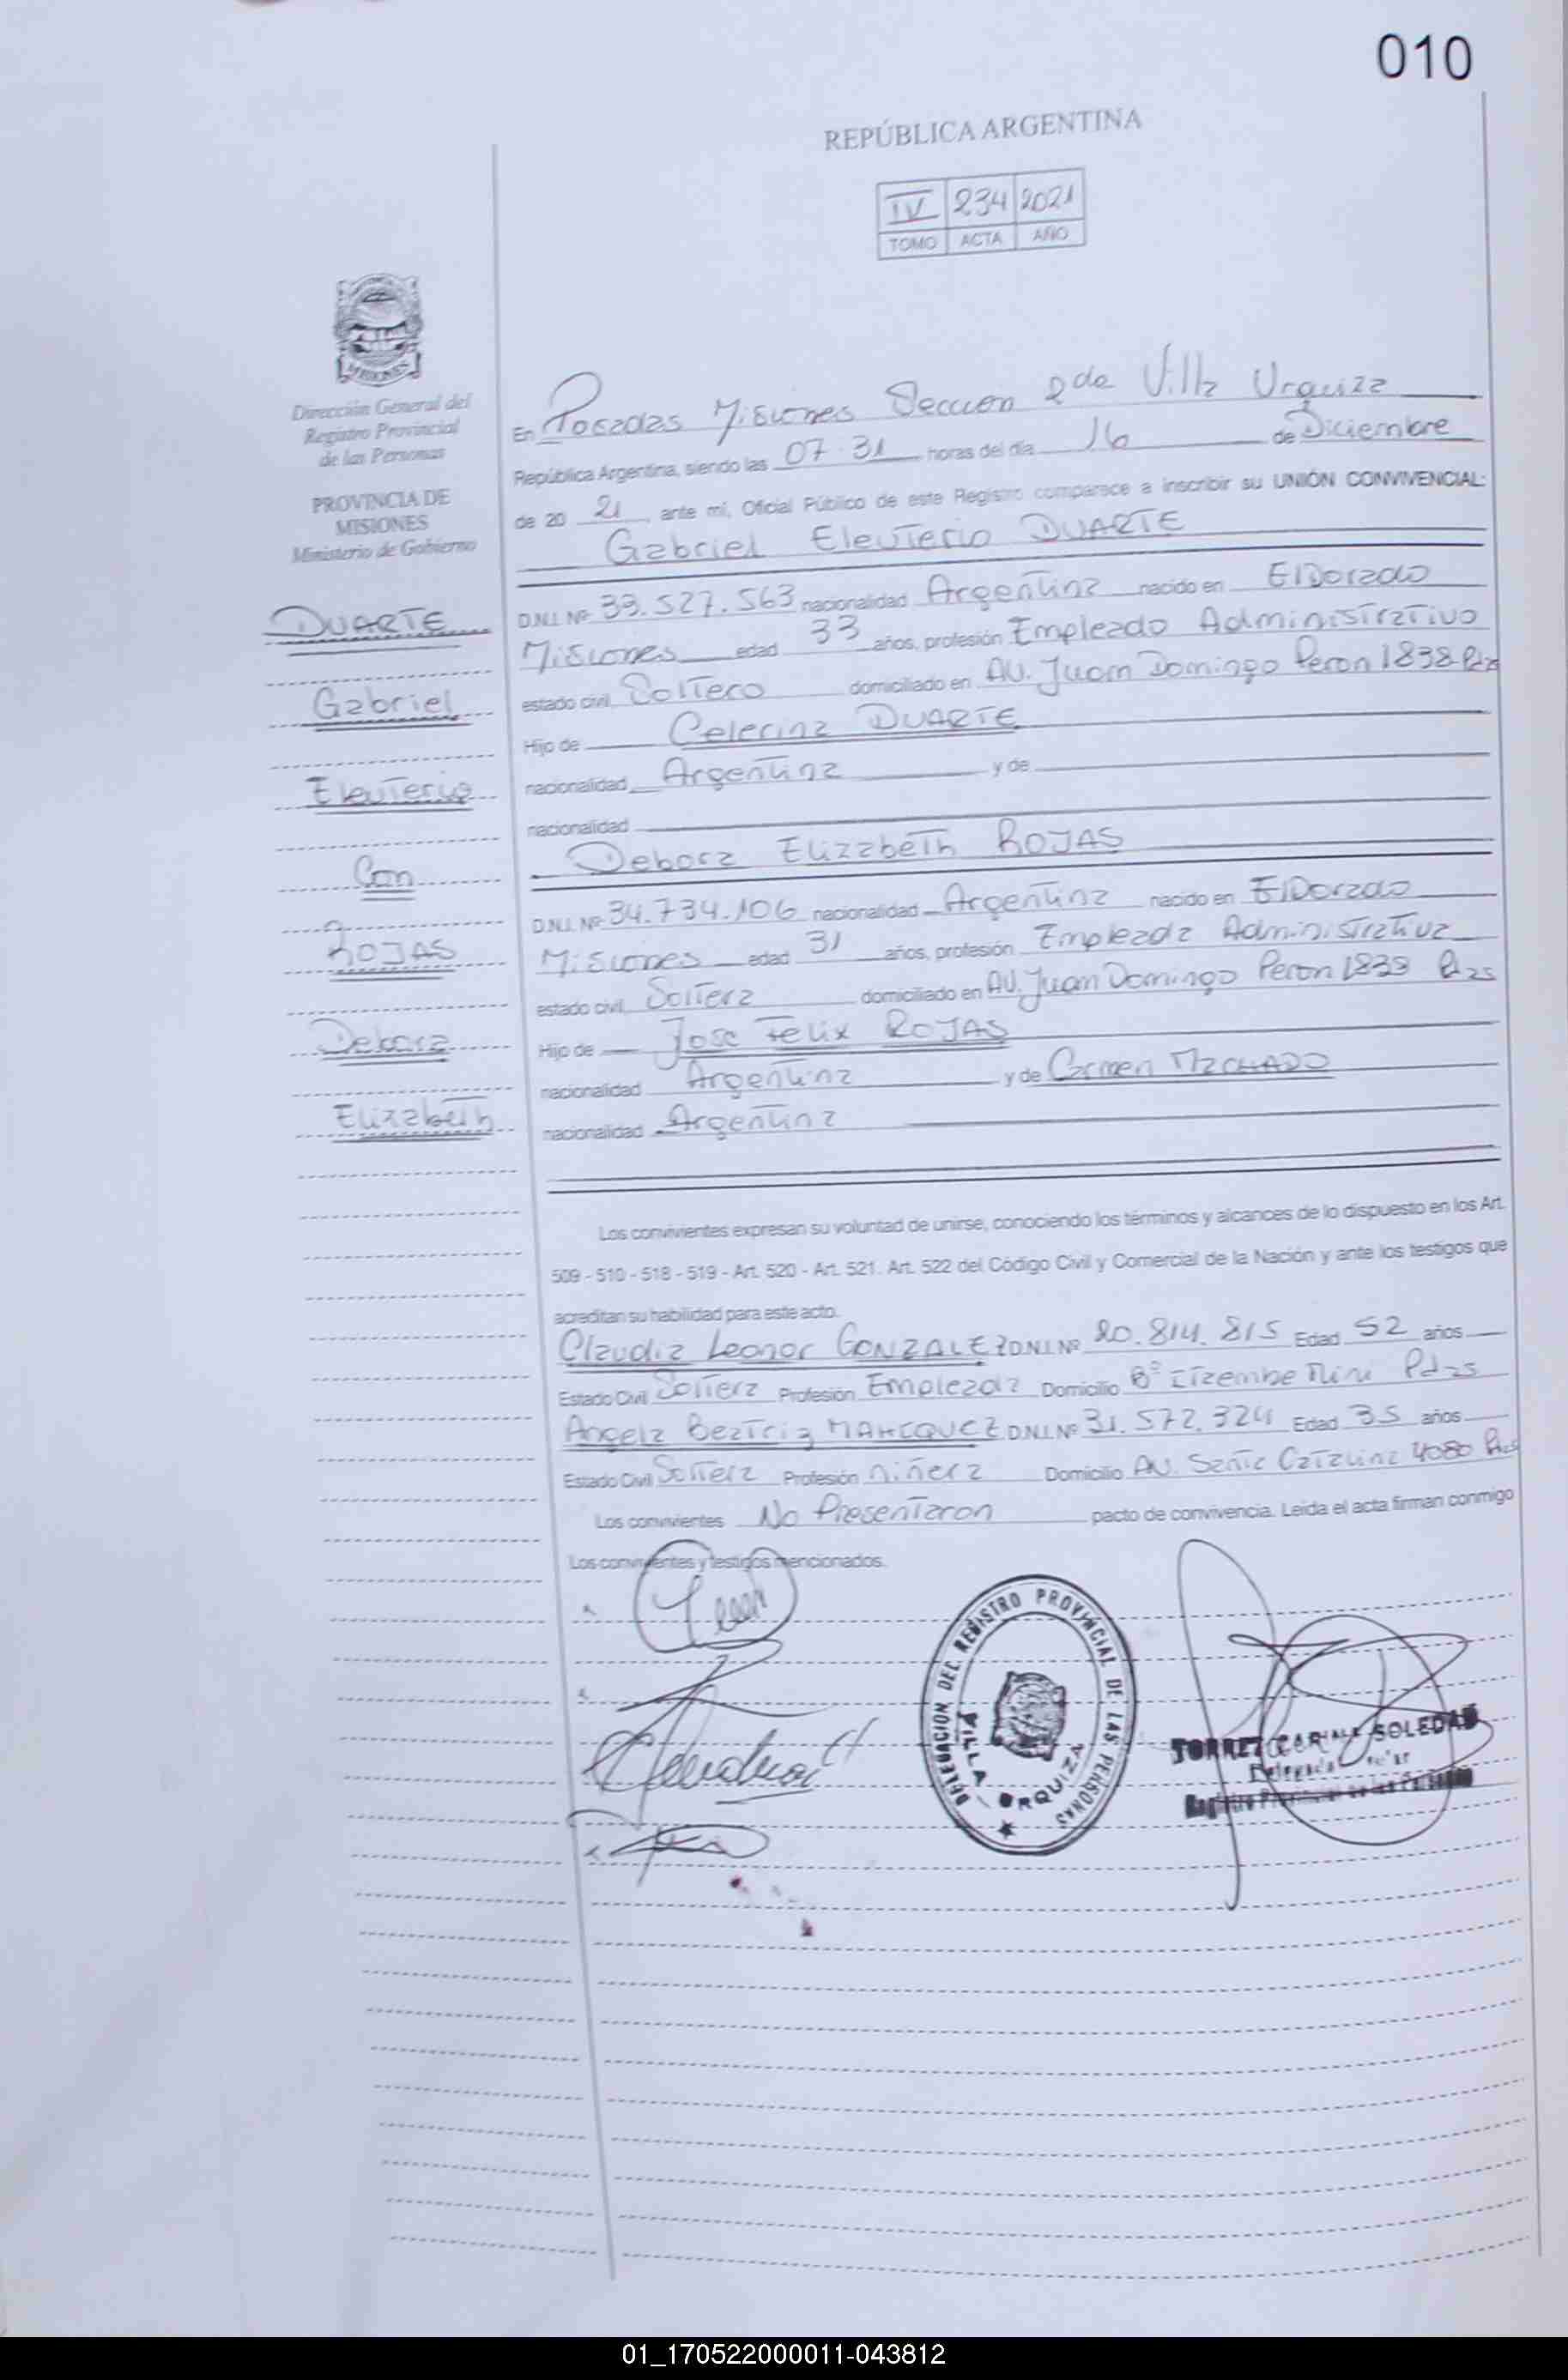 010
REPÚBLICA ARGENTINA
IV 234 2021
TOMO ACTA AÑO
MISIONES
Dirección General del
Registro Provincial
de las Personas
PROVINCIA DE
MISIONES
Ministerio de Gobierno
DUARTE
Gabriel
Eleuterio
Con
ROJAS
Debora
Elizabeth
En Posadas Misiones Seccion 2da Villa Urquiza
República Argentina, siendo las 07 31 horas del día 16 de Diciembre
de 20 21, ante mí, Oficial Público de este Registro comparece a inscribir su UNIÓN CONVIVENCIAL:
Gabriel Eleuterio DUARTE
D.N.I. Nº 33.527.563 nacionalidad Argentina nacido en ElDorado
Misiones edad 33 años, profesión Empleado Administrativo
estado civil Soltero domiciliado en AV. Juan Domingo Peron 1838 Pdas
Hijo de Celerina DUARTE
nacionalidad Argentina y de
nacionalidad
Debora Elizabeth ROJAS
D.N.I. Nº 34.734.106 nacionalidad Argentina nacido en ElDorado
Misiones edad 31 años, profesión Empleada Administrativa
estado civil Soltera domiciliado en AV. Juan Domingo Peron 1838 Pdas
Hijo de Jose Felix ROJAS
nacionalidad Argentina y de Carmen MACHADO
nacionalidad Argentina
Los convivientes expresan su voluntad de unirse, conociendo los términos y alcances de lo dispuesto en los Art.
509 - 510 - 518 - 519 - Art. 520 - Art. 521. Art. 522 del Código Civil y Comercial de la Nación y ante los testigos que
acreditan su habilidad para este acto.
Claudia Leonor GONZALEZ D.N.I. Nº 20.814.815 Edad 52 años
Estado Civil Soltera Profesión Empleada Domicilio Bº Itaembe Mini Pdas
Angela Beatriz D.N.I. Nº 31.572.324 Edad 35 años
Estado Civil Soltera Profesión niñera Domicilio AV. Santa Catalina 4080 Pdas
Los convivientes No Presentaron pacto de convivencia. Leída el acta firman conmigo
Los convivientes y testigos mencionados.
DELEGACION DEL REGISTRO PROVINCIAL DE LAS PERSONAS
VILLA URQUIZA
TORREZ CARINA SOLEDAD
Registro Provincial de las Personas
01_170522000011-043812